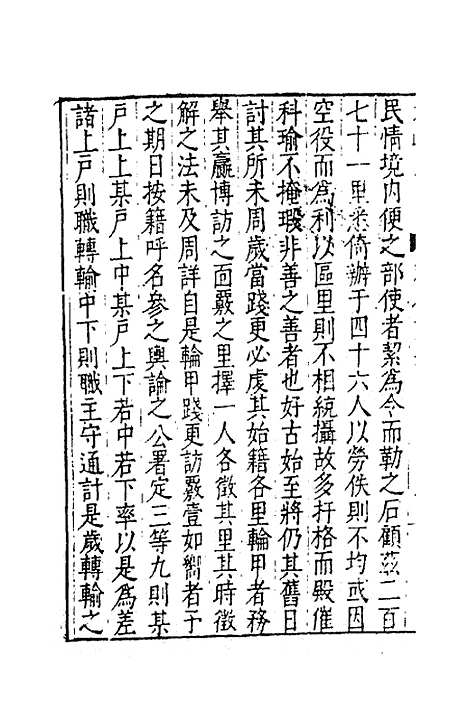 民情境内便之部使者絜爲令而勒之石顧茲二百
七十一里柔倚辦于四十六人以勞佚則不均或因
空役而爲利以區里則不相統攝故多扞格而殿催
科瑜不掩瑕非善之善者也好古始至將仍其舊日
討其所未周歲當踐更必虔其始籍各里輪甲者務
舉其贏博訪之面覈之里擇一人各徵其里其時徵
解之法未及周詳自是輪甲踐更訪覈壹如嚮者予
之期日按籍呼名參之輿論之公署定三等九則某
戶上上某戶上中某戶上下若中若下率以是爲差
諸上戶則職轉輸中下則職主守通計是歲轉輸之